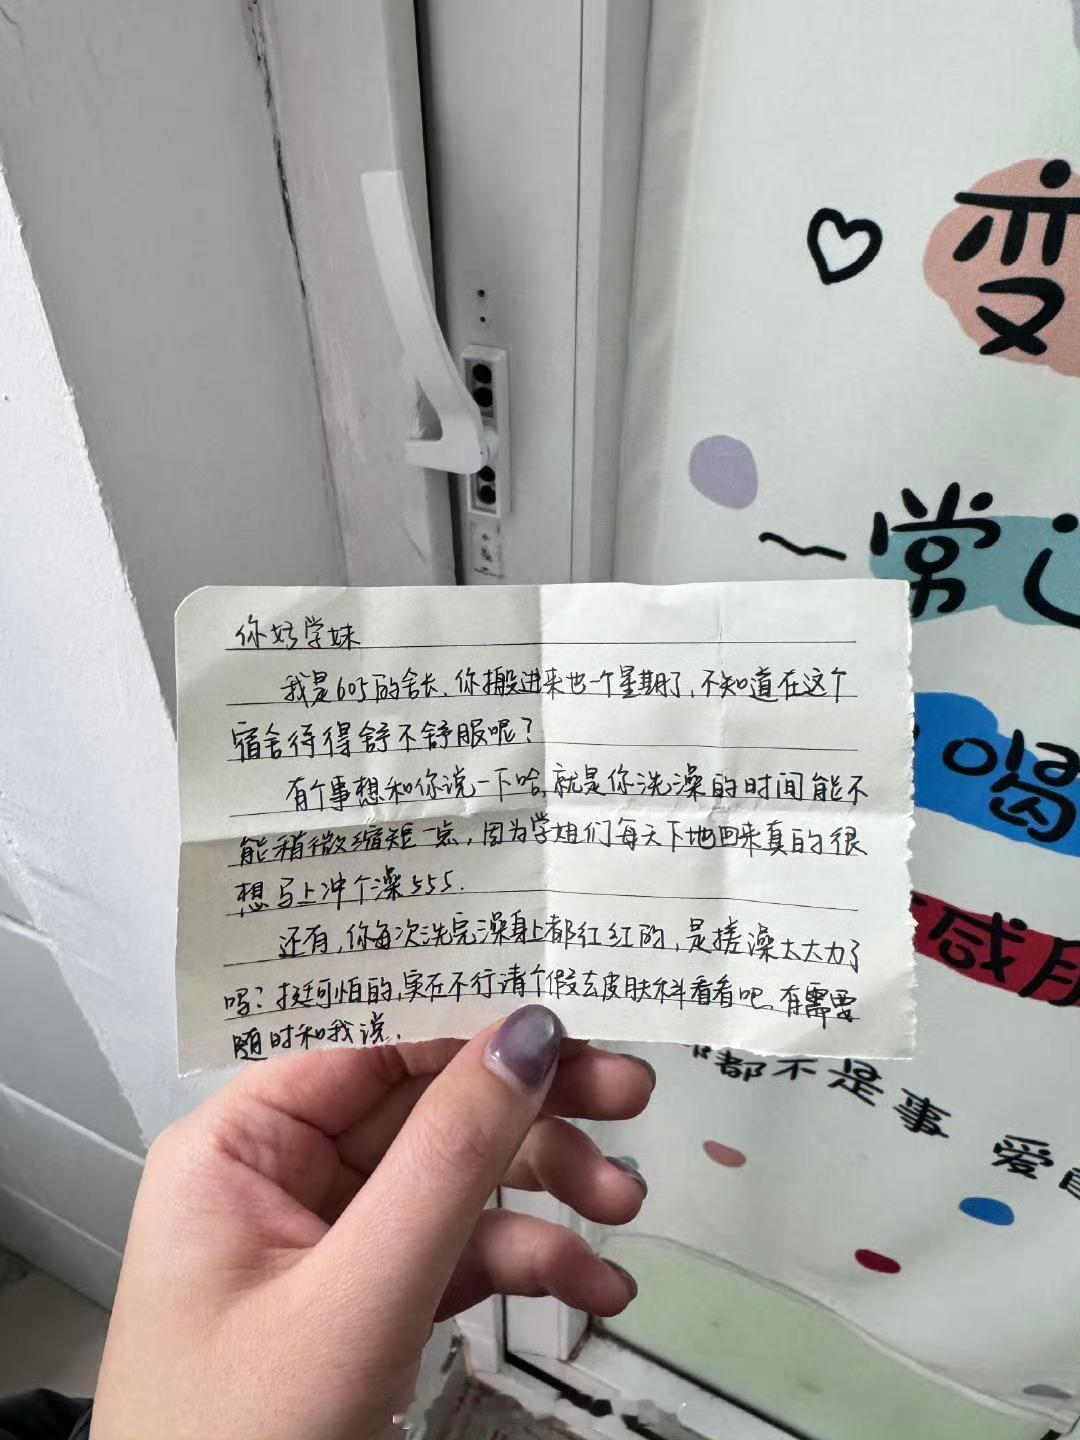 你好学妹
我是605的舍长,你搬进来也一个星期了,不知道在这个
宿舍待得舒不舒服呢?
有个事想和你说一下哈,就是你洗澡的时间能不
能稍微缩短一点,因为学姐们每天下地回来真的很
想马上冲个澡555.
还有,你每次洗完澡身上都红红的,是搓澡太大力了
吗?挺可怕的,实在不行请个假去皮肤科看看吧.有需要
随时和我说.
变
~常
喝
感
都不是事 爱